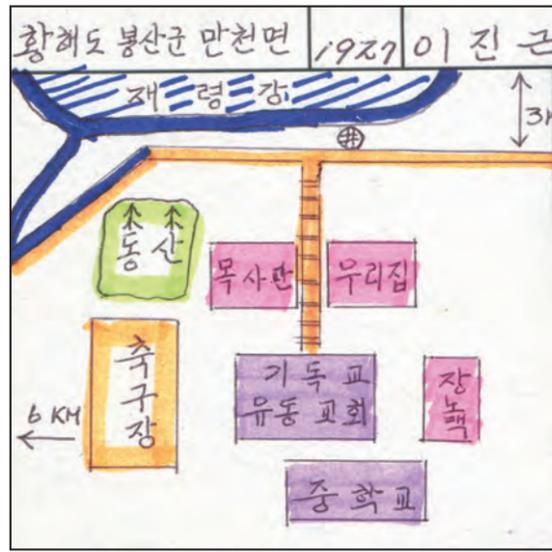 황해도 봉산군 만천면
1927
이진근
재령강
동산
목사관
우리집
축구장
기독교
유동교회
장노댁
중학교
6 KM